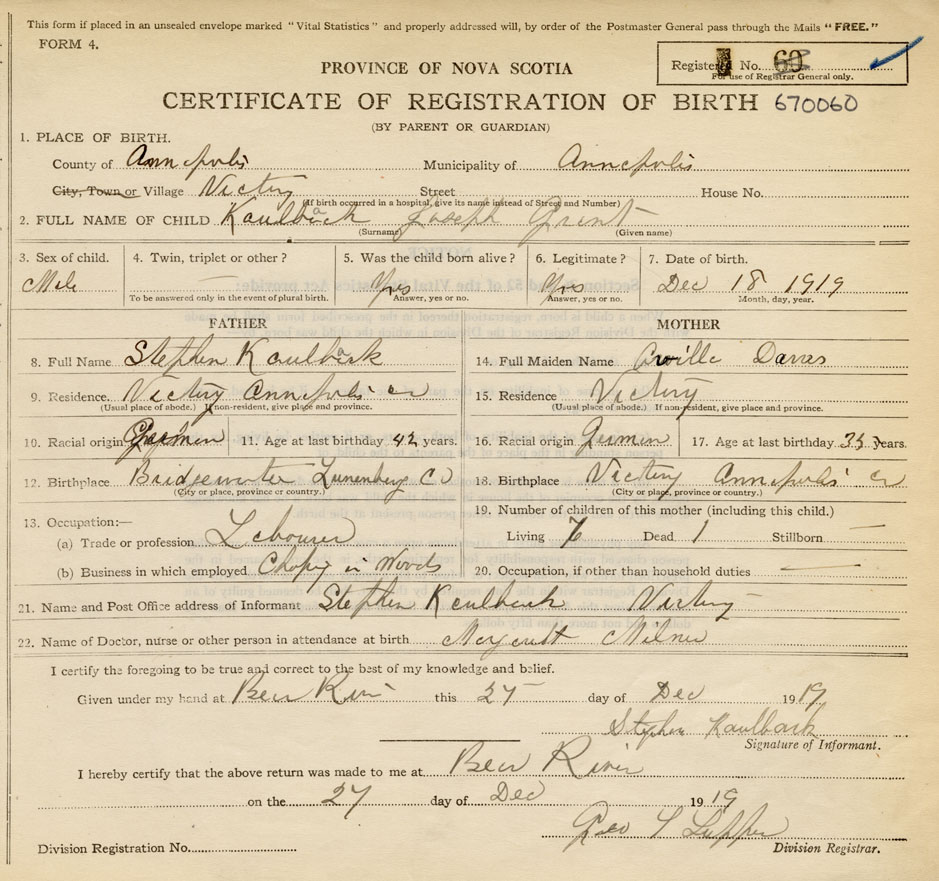 This form if placed in an unsealed envelope marked "Vital Statistics" and properly addressed will, by order of the Postmaster General pass through the Mails "FREE."
FORM 4.
Registered No. 60
For use of Registrar General only.
PROVINCE OF NOVA SCOTIA
CERTIFICATE OF REGISTRATION OF BIRTH 670060
(BY PARENT OR GUARDIAN)
1. PLACE OF BIRTH.
County of Annapolis Municipality of Annapolis
City, Town or Village Victory Street House No.
(If birth occurred in a hospital, give its name instead of Street and Number)
2. FULL NAME OF CHILD Kaulback Joseph Grant
(Surname) (Given name)
3. Sex of child. 4. Twin, triplet or other? 5. Was the child born alive? 6. Legitimate? 7. Date of birth.
Male Yes Yes Dec 18 1919
To be answered only in the event of plural birth. Answer, yes or no. Answer, yes or no. Month, day, year.
FATHER MOTHER
8. Full Name Stephen Kaulback 14. Full Maiden Name Darres
9. Residence. Victory Annapolis Co 15. Residence Victory
(Usual place of abode.) If non-resident, give place and province. (Usual place of abode.) If non-resident, give place and province.
10. Racial origin German 11. Age at last birthday 42 years. 16. Racial origin German 17. Age at last birthday years.
12. Birthplace Bridgewater Lunenberg Co 18. Birthplace Victory Annapolis Co
(City or place, province or country.) (City or place, province or country.)
13. Occupation:— 19. Number of children of this mother (including this child.)
(a) Trade or profession Labourer Living Dead 1 Stillborn —
(b) Business in which employed Choping in Woods 20. Occupation, if other than household duties —
21. Name and Post Office address of Informant Stephen Kaulback Victory
22. Name of Doctor, nurse or other person in attendance at birth Margarett Milner
I certify the foregoing to be true and correct to the best of my knowledge and belief.
Given under my hand at Bear River this 27 day of Dec 1919
Stephen Kaulback
Signature of Informant.
I hereby certify that the above return was made to me at Bear River
on the 27 day of Dec 1919
Geo
Division Registration No. Division Registrar.